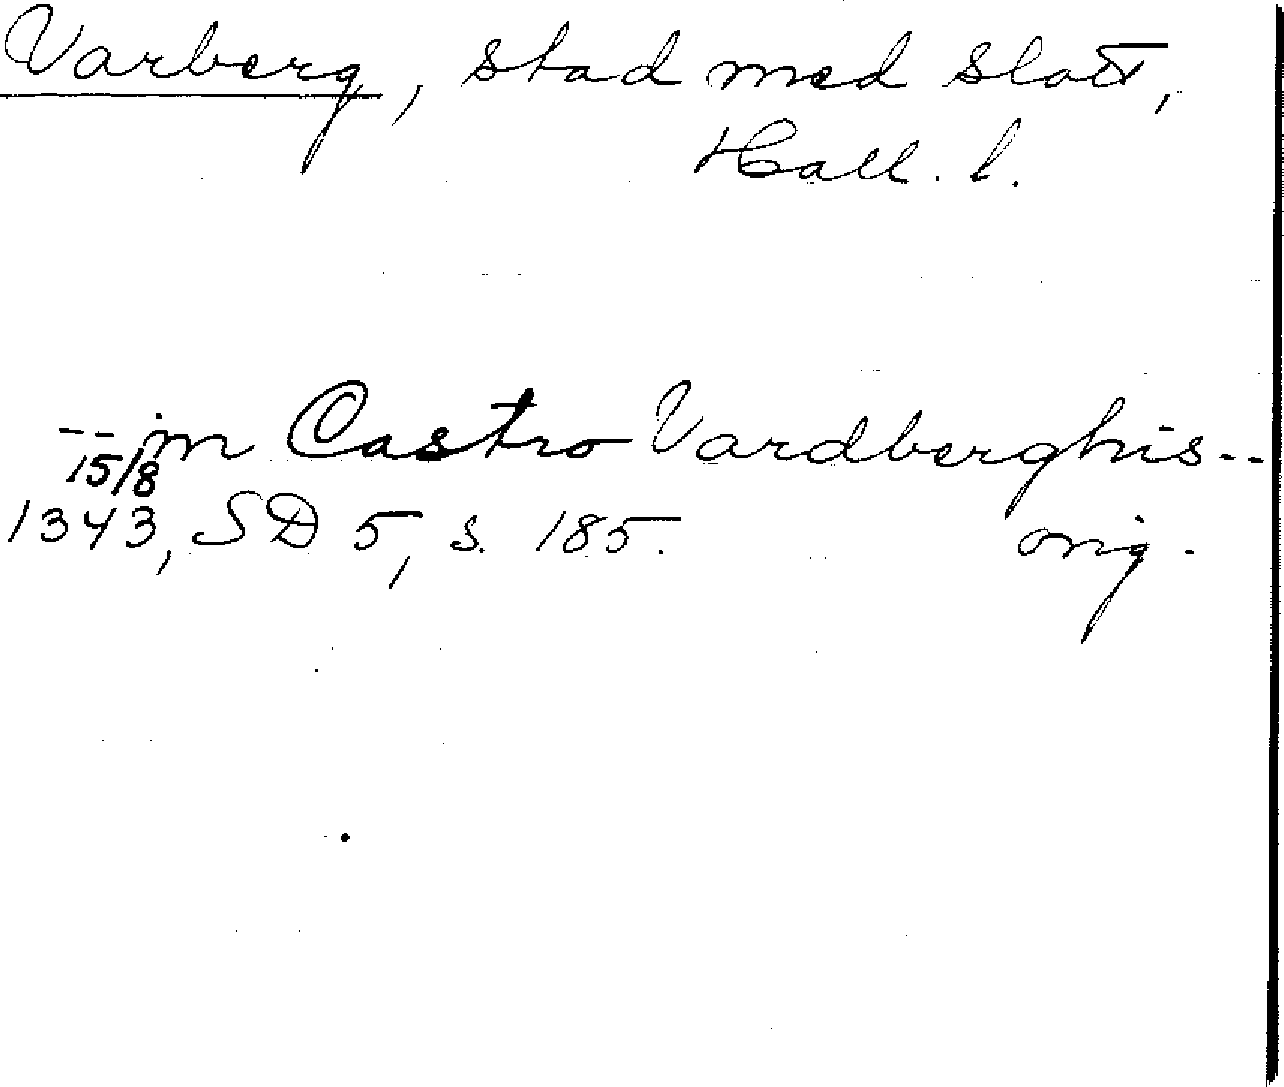 Varberg, stad med slott,
Hall. l.
-- in Castro Vardberghis --
15/8
1343, SD 5, s. 185. orig.